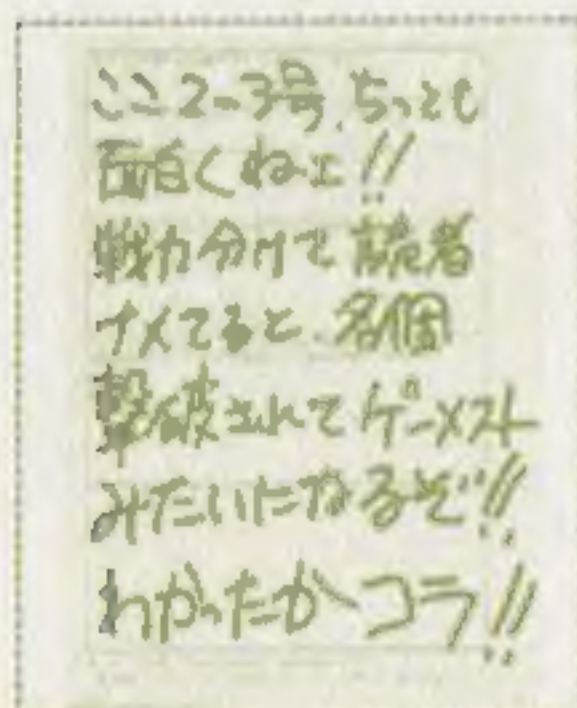 ここ2〜3号、ちっとも
面白くねェ!!
戦力分けて読者
ナメてると、各個
撃破されてゲーメスト
みたいになるぞ!!
わかったかコラ!!